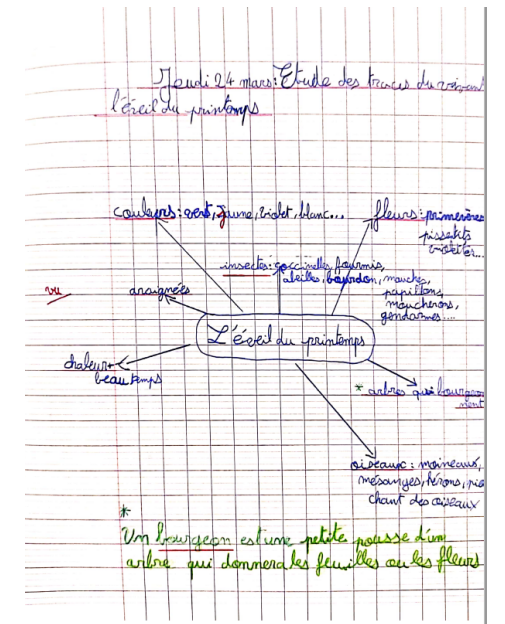 Jeudi 24 mars: Etude des traces du vivant
l'éveil du printemps
couleurs: vert, jaune, violet, blanc...
fleurs: primevères
pissenlits
violettes...
insectes: coccinelles, fourmis,
abeilles, bourdon, mouches,
papillons,
moucherons,
gendarmes....
vu
araignées
L'éveil du printemps
chaleur +
beau temps
* arbres qui bourgeon
nent
oiseaux: moineaux,
mésanges, hérons, pie
chant des oiseaux
*
Un bourgeon est une petite pousse d'un
arbre qui donnera les feuilles ou les fleurs